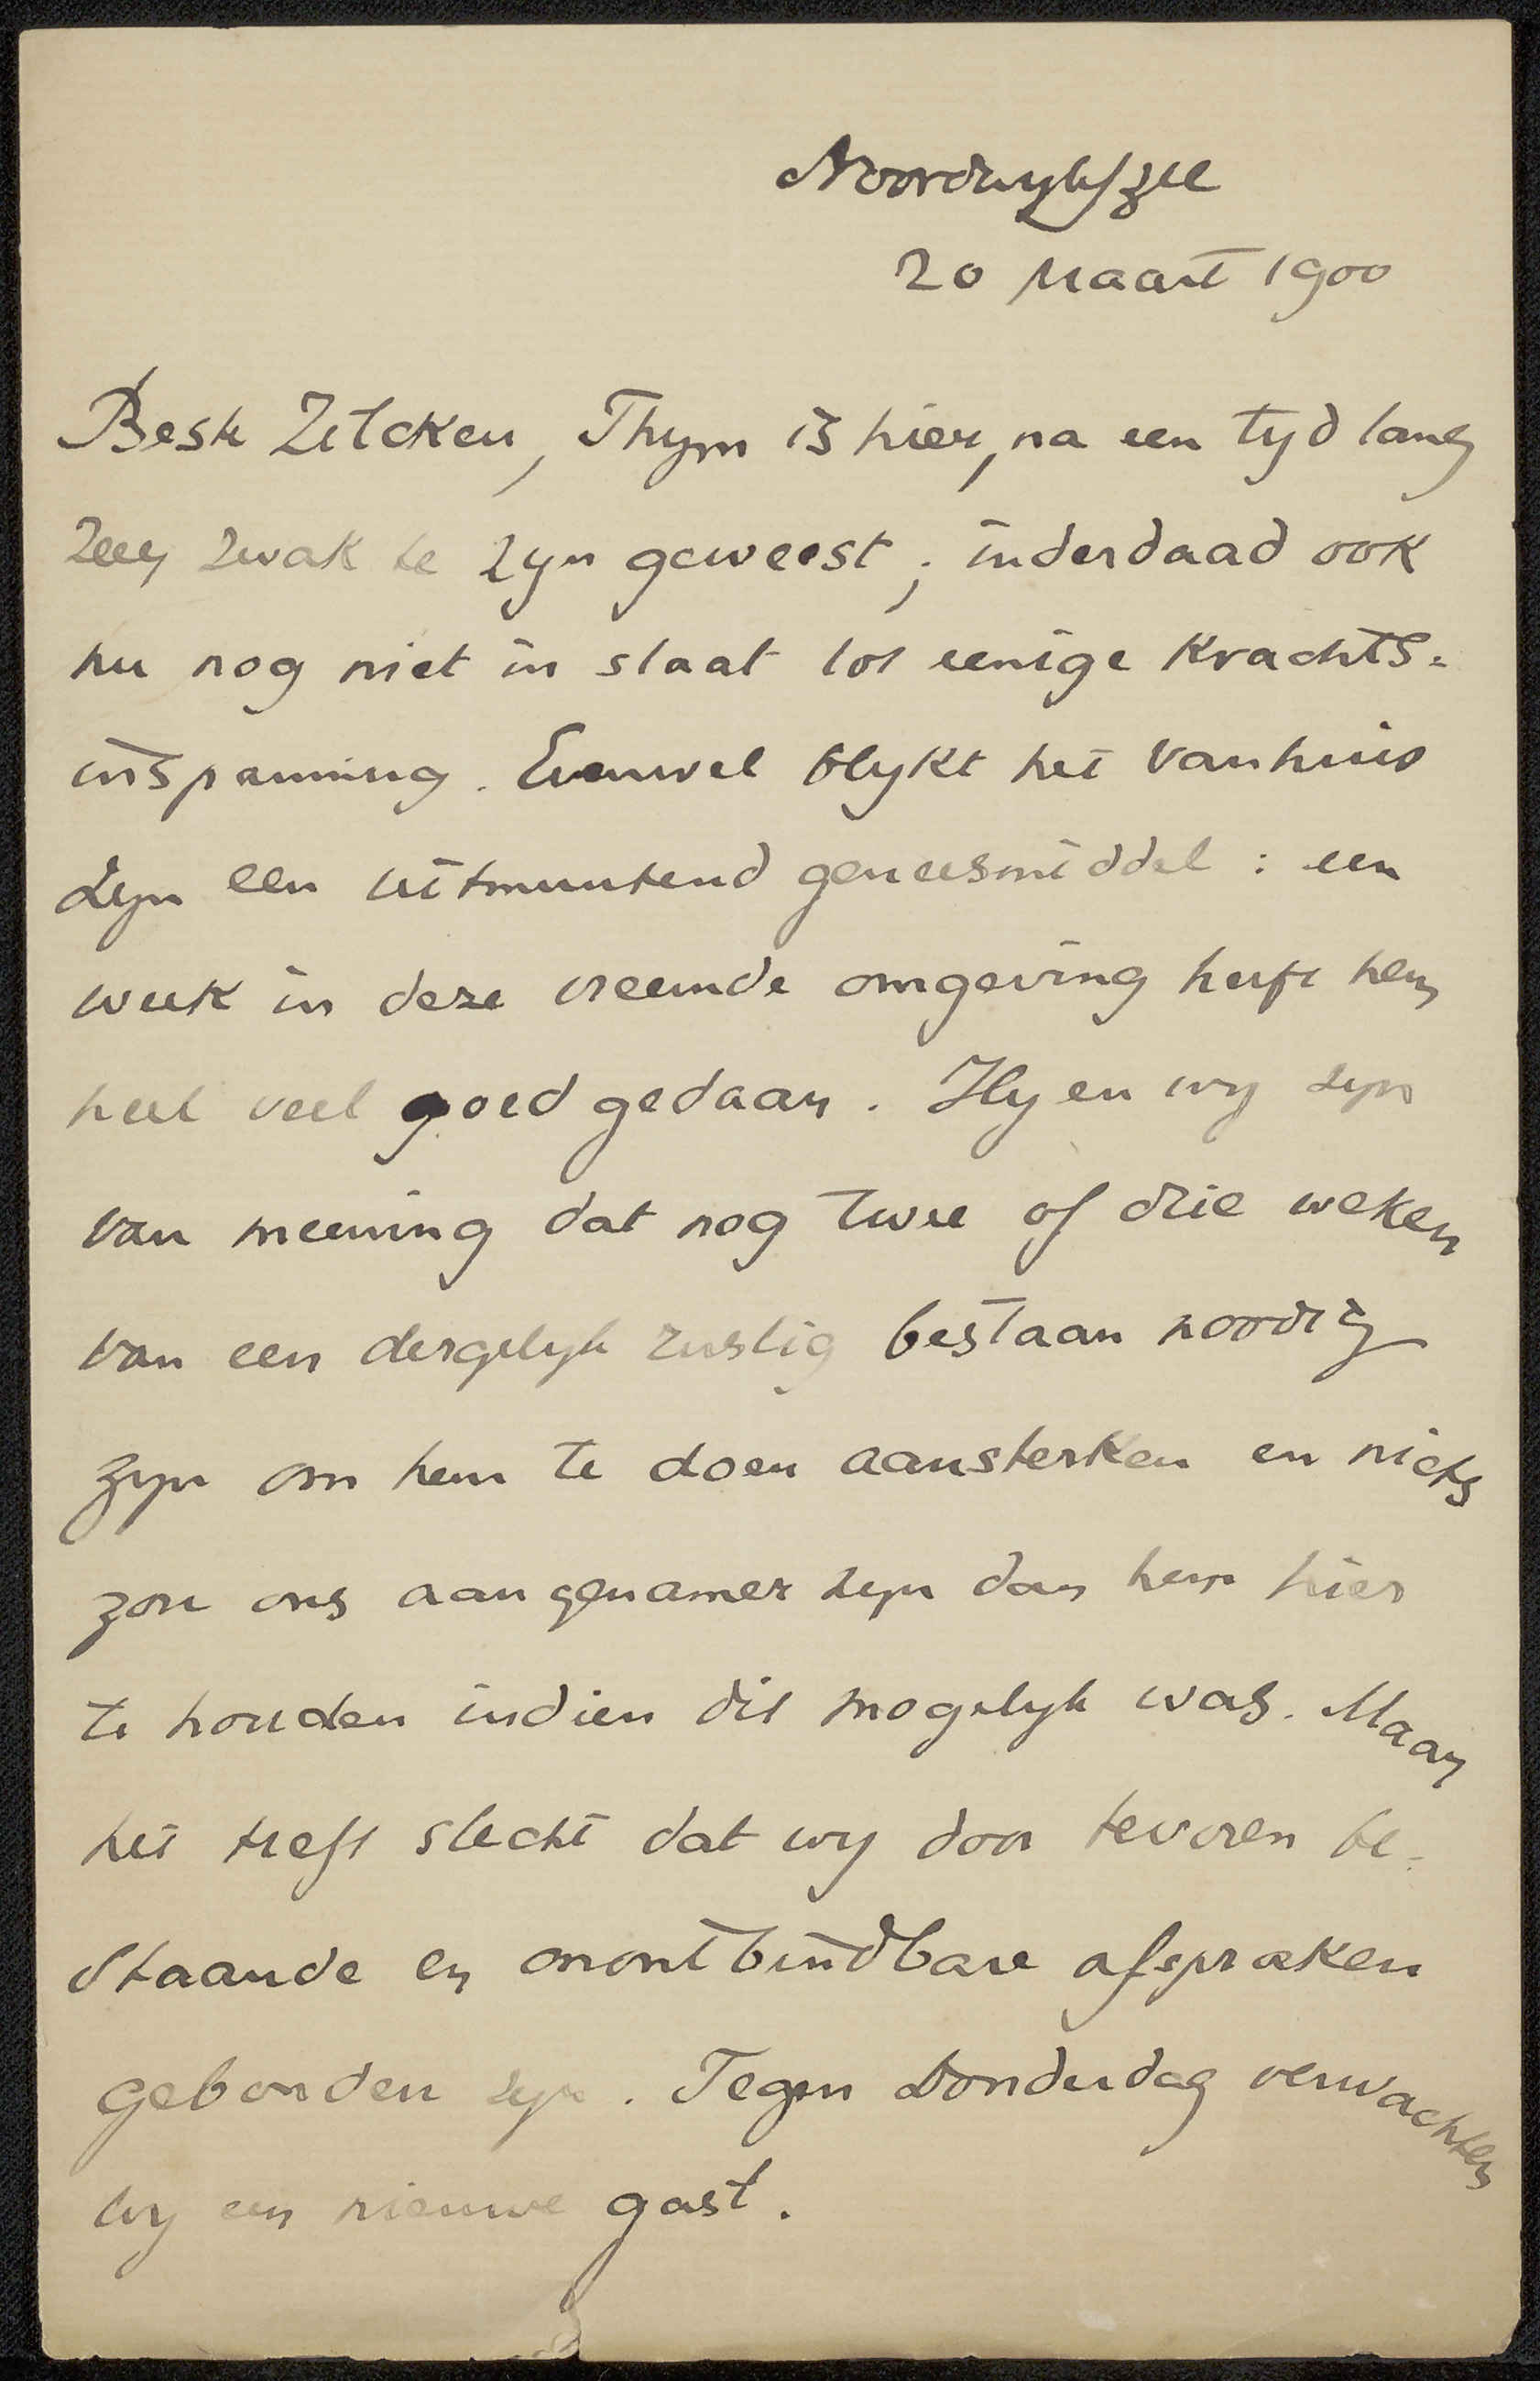 Noordwyk/zee
20 Maart 1900
Beste Zilcken, Thym is hier, na een tyd lang
zeer zwak te zyn geweest; inderdaad ook
nu nog niet in staat tot eenige krachts=
inspanning. Evenwel blykt het vanhuis
zyn een uitmuntend geneesmiddel: een
week in deze vreemde omgeving heeft hem
heel veel goed gedaan. Hy en wy zyn
van meening dat nog twee of drie weken
van een dergelyk rustig bestaan noodig
zyn om hem te doen aansterken en niets
zou ons aangenamer zyn dan hem hier
te houden indien dit mogelyk was. Maar
het treft slecht dat wy door tevoren be-
staande en onontbindbare afspraken
gebonden zyn. Tegen Donderdag verwachten
wy een nieuwe gast.